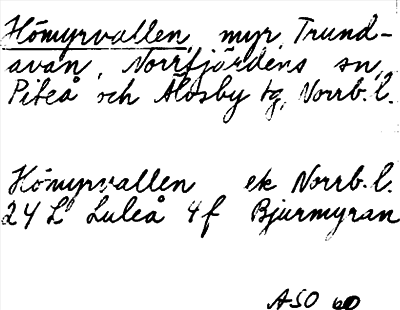 Hömyrvallen, myr, Trund-
avan, Norrfjärdens sn,
Piteå och Älvsby tg, Norrb. l.
Hömyrvallen ek Norrb. l.
24 L Luleå 4f Bjurmyran
ASO 60